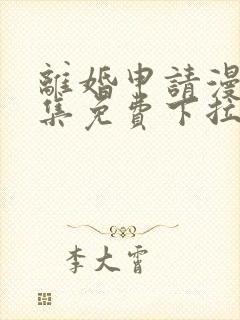 離婚申請漫
集免費下拉
李大霄